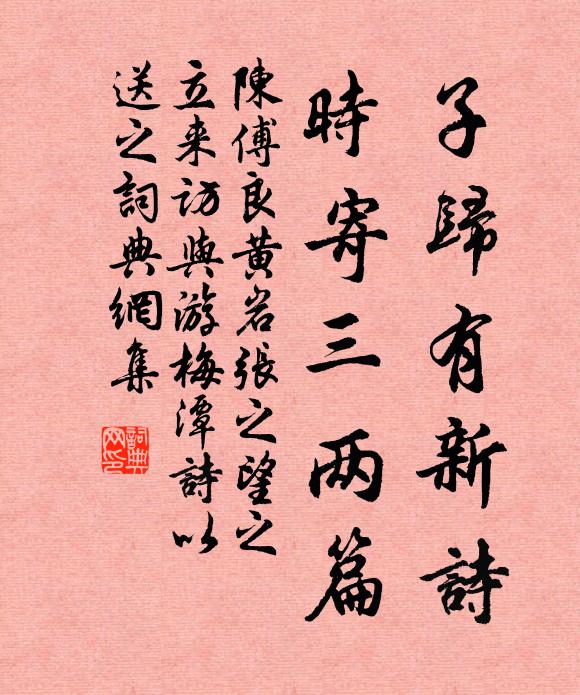 子歸有新詩
時寄三两篇
陳傅良黄岩張之望之
立来访與游梅潭詩以
送之詞典網集
詞典网印